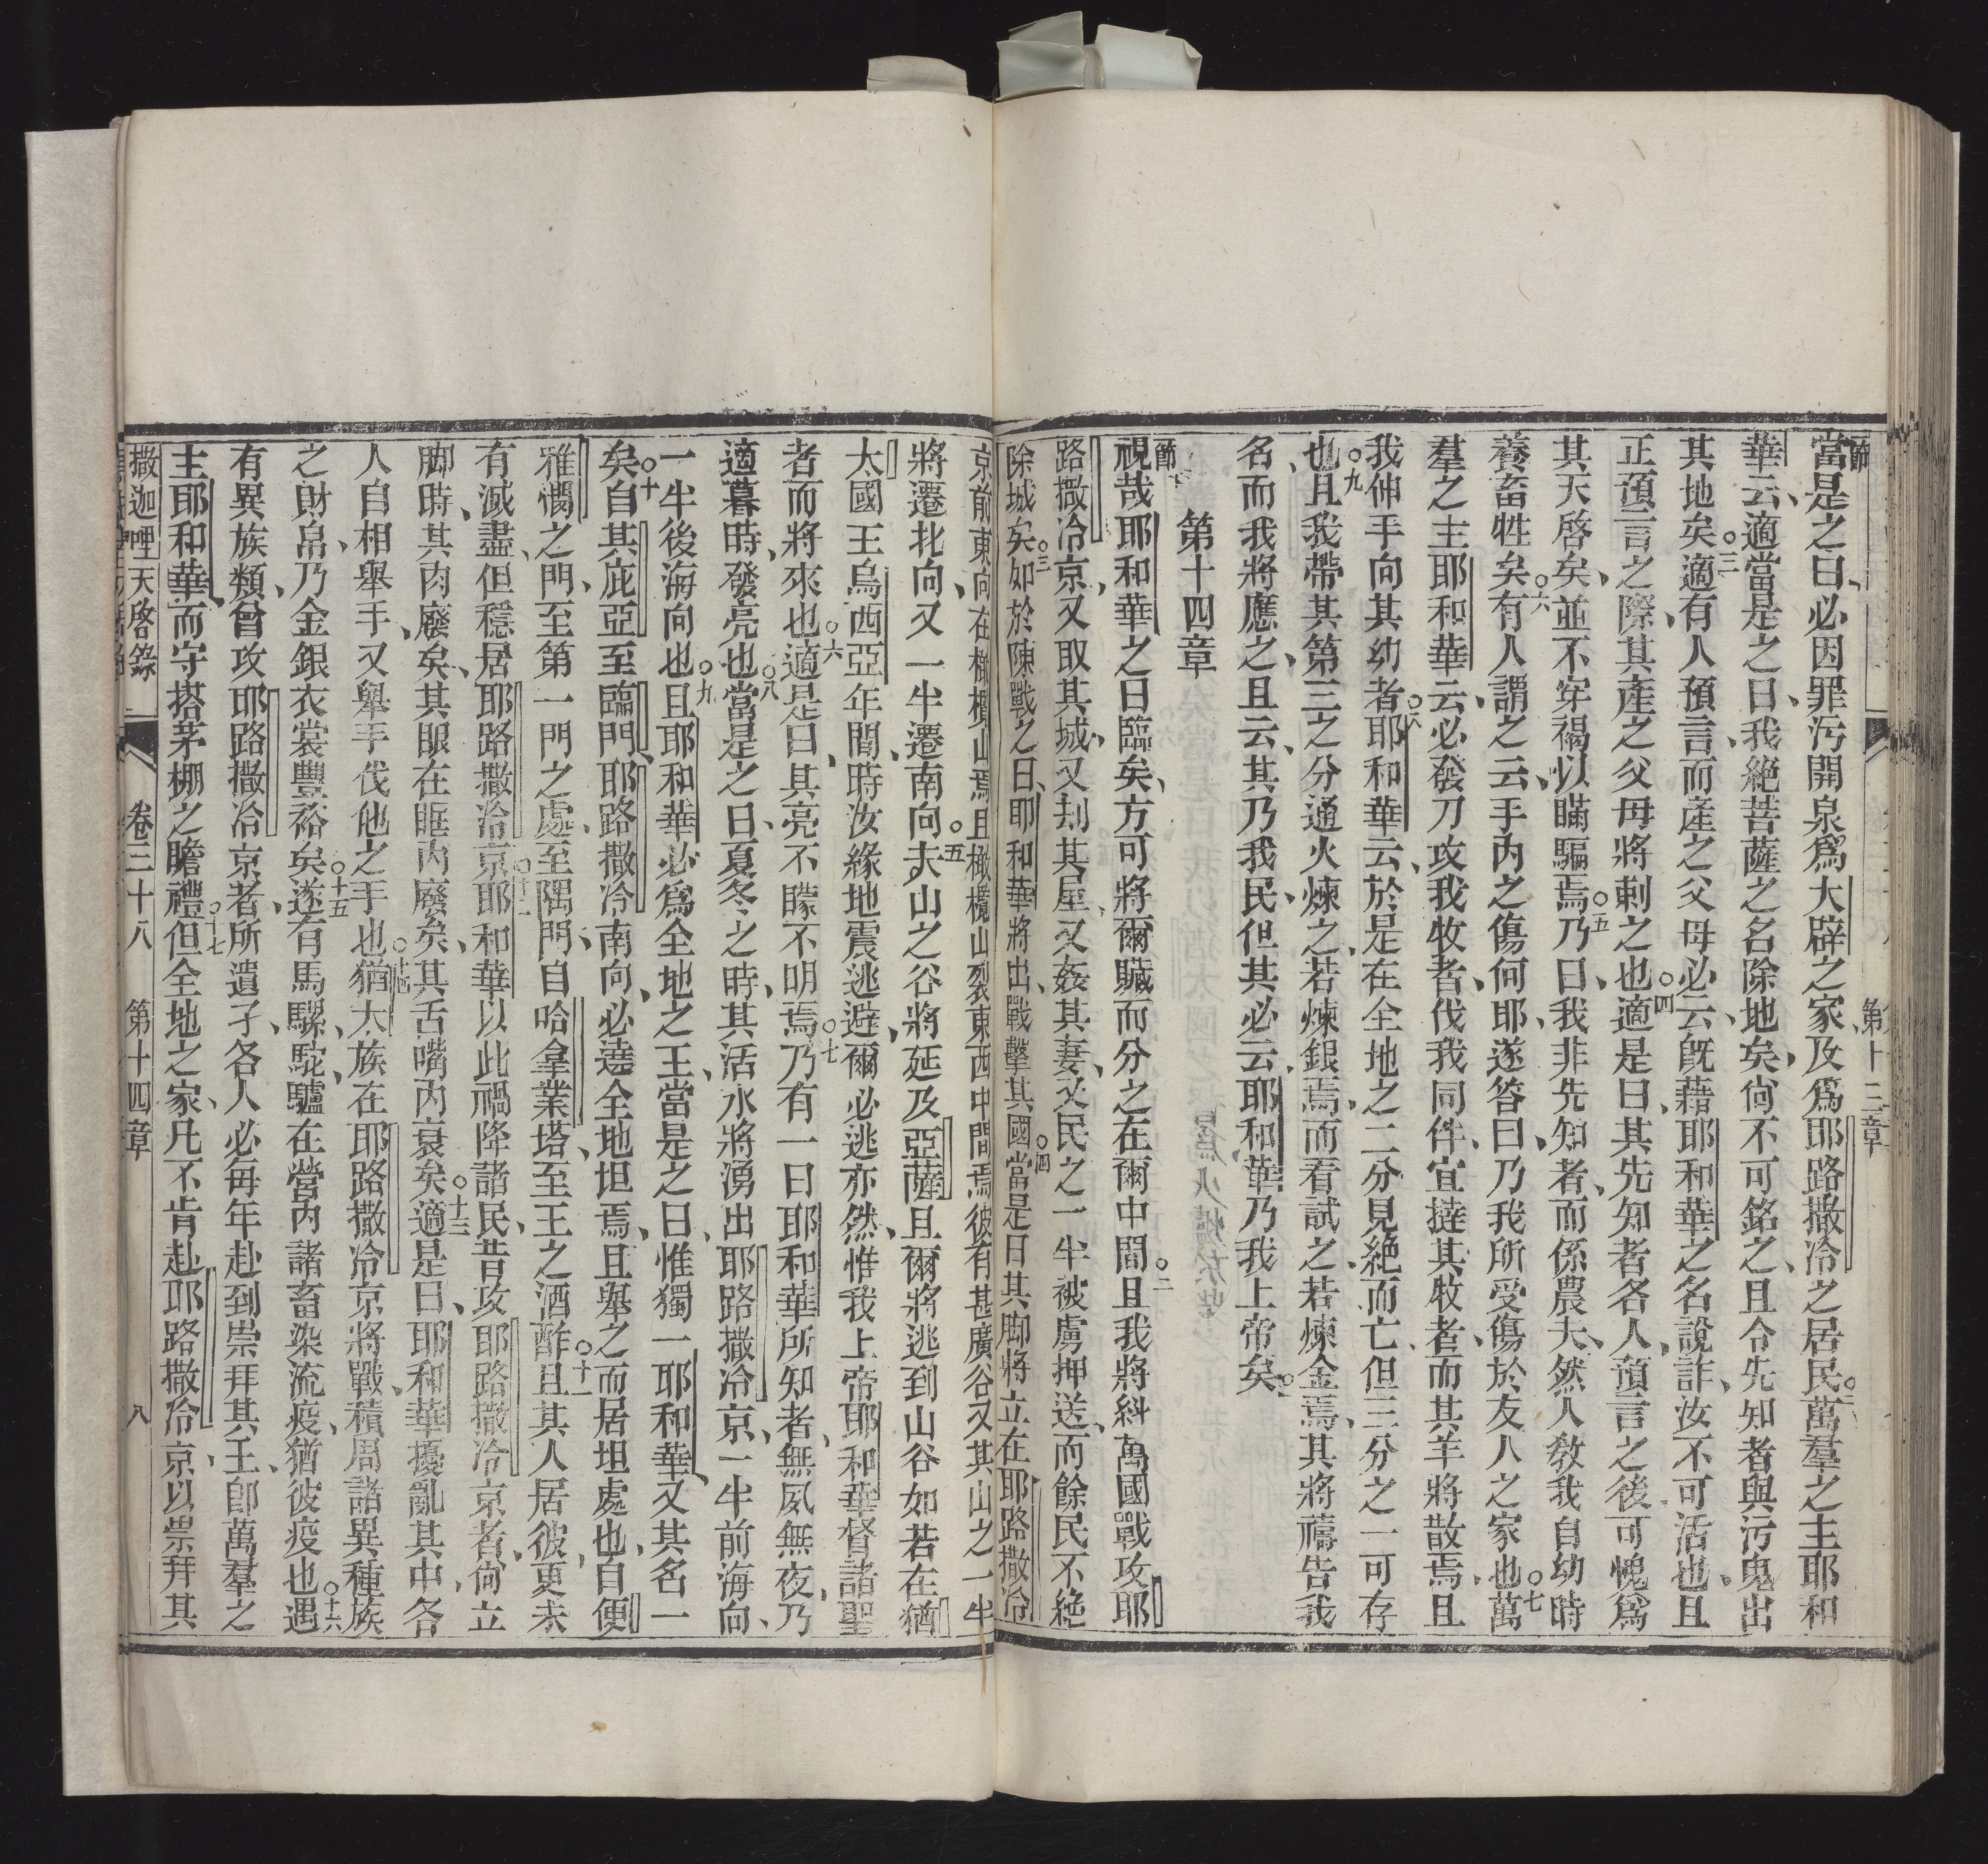 第十三章
節一
當是之日、必因罪汚開泉爲大辟之家、及爲耶路撒冷之居民。○二萬羣之主耶和
華云、適當是之日、我絕菩薩之名除地矣、尙不可銘之、且令先知者與污鬼出
其地矣。○三適有人預言、而產之父母必云、旣藉耶和華之名說詐、汝不可活也、且
正預言之際、其產之父母將刺之也。○四適是日、其先知者各人、預言之後可愧爲
其天啓矣、並不穿褐以瞞騙焉。○五乃曰、我非先知者、而係農夫、然人敎我自幼時
養畜牲矣。○六有人謂之云、手內之傷何耶、遂答曰、乃我所受傷於友人之家也。○七萬
羣之主耶和華云、必發刀攻我牧者、伐我同伴、宜撻其牧者、而其羊將散焉、且
我伸手向其幼者。○八耶和華云、於是在全地之二分見絕而亡、但三分之一可存
也。○九且我帶其第三之分通火煉之、若煉銀焉、而看試之、若煉金焉、其將禱告我
名、而我將應之、且云、其乃我民、但其必云、耶和華乃我上帝矣。
第十四章
節一
視哉、耶和華之日臨矣、方可將爾贓而分之在爾中間。○二且我將糾萬國戰攻耶
路撒冷京、又取其城、又刦其屋、又姦其妻、又民之一半被虜押送、而餘民不絕
除城矣。○三如於陳戰之日、耶和華將出、戰擊其國。○四當是日其脚將立在耶路撒冷
京前東向在橄欖山焉、且橄欖山裂東西中間焉、彼有甚廣谷、又其山之一半
將遷北向、又一半遷南向。○五夫山之谷將延及亞薩、且爾將逃到山谷、如若在猶
太國王烏西亞年間、時汝緣地震逃避、爾必逃亦然、惟我上帝耶和華督諸聖
者而將來也。○六適是日、其亮不矇不明焉。○七乃有一日耶和華所知者、無夙無夜、乃
適暮時、發亮也。○八當是之日、夏冬之時、其活水將湧出耶路撒冷京、一半前海向、
一半後海向也。○九且耶和華必爲全地之王、當是之日、惟獨一耶和華、又其名一
矣。○十自其庇亞至臨門、耶路撒冷南向、必遶全地坦焉、且舉之而居坦處也、自便
雅憫之門、至第一門之處、至隅門、自哈拿業塔、至王之酒醡。○十一且其人居彼、更未
有滅盡、但穩居耶路撒冷京。○十二耶和華以此禍降諸民、昔攻耶路撒冷京者、尙立
脚時、其肉廢矣、其眼在眶內廢矣、其舌嘴內衰矣。○十三適是日、耶和華擾亂其中、各
人自相舉手、又舉手伐他之手也。○十四猶太族在耶路撒冷京將戰、積周諸異種族
之財帛、乃金銀衣裳豐裕矣。○十五遂有馬騾、駝、驢、在營內諸畜染流疫、猶彼疫也。○十六遇
有異族類、曾攻耶路撒冷京者、所遺孑、各人必每年赴到崇拜其王、卽萬羣之
主耶和華、而守搭茅棚之瞻禮。○十七但全地之家、凡不肯赴耶路撒冷京、以崇拜其
撒迦哩天啓錄 卷三十八 第十四章 八